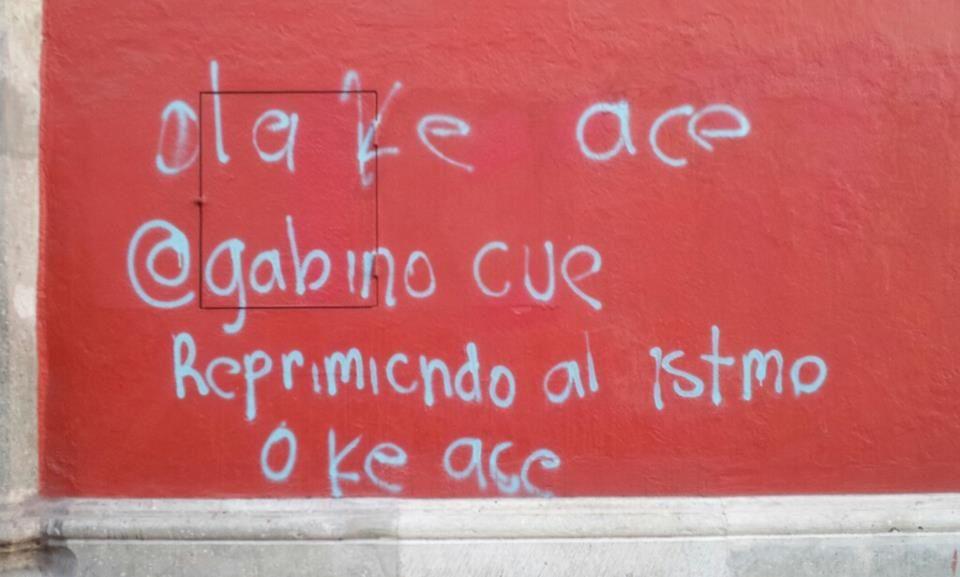 ola ke ace
@gabino cue
Reprimiendo al istmo
o ke ace